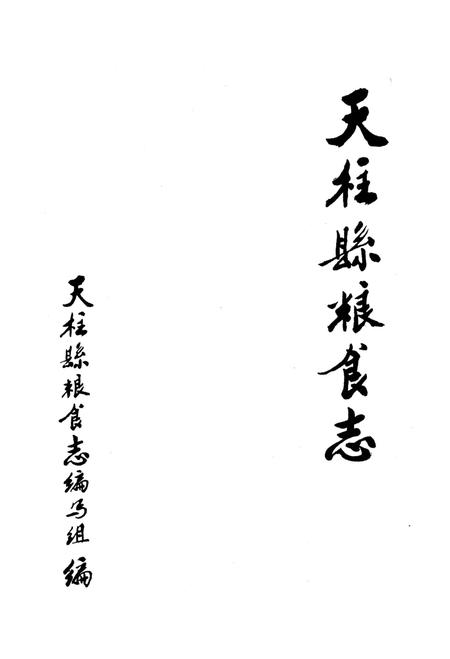 天柱縣粮食志
天柱縣粮食志编写组 编